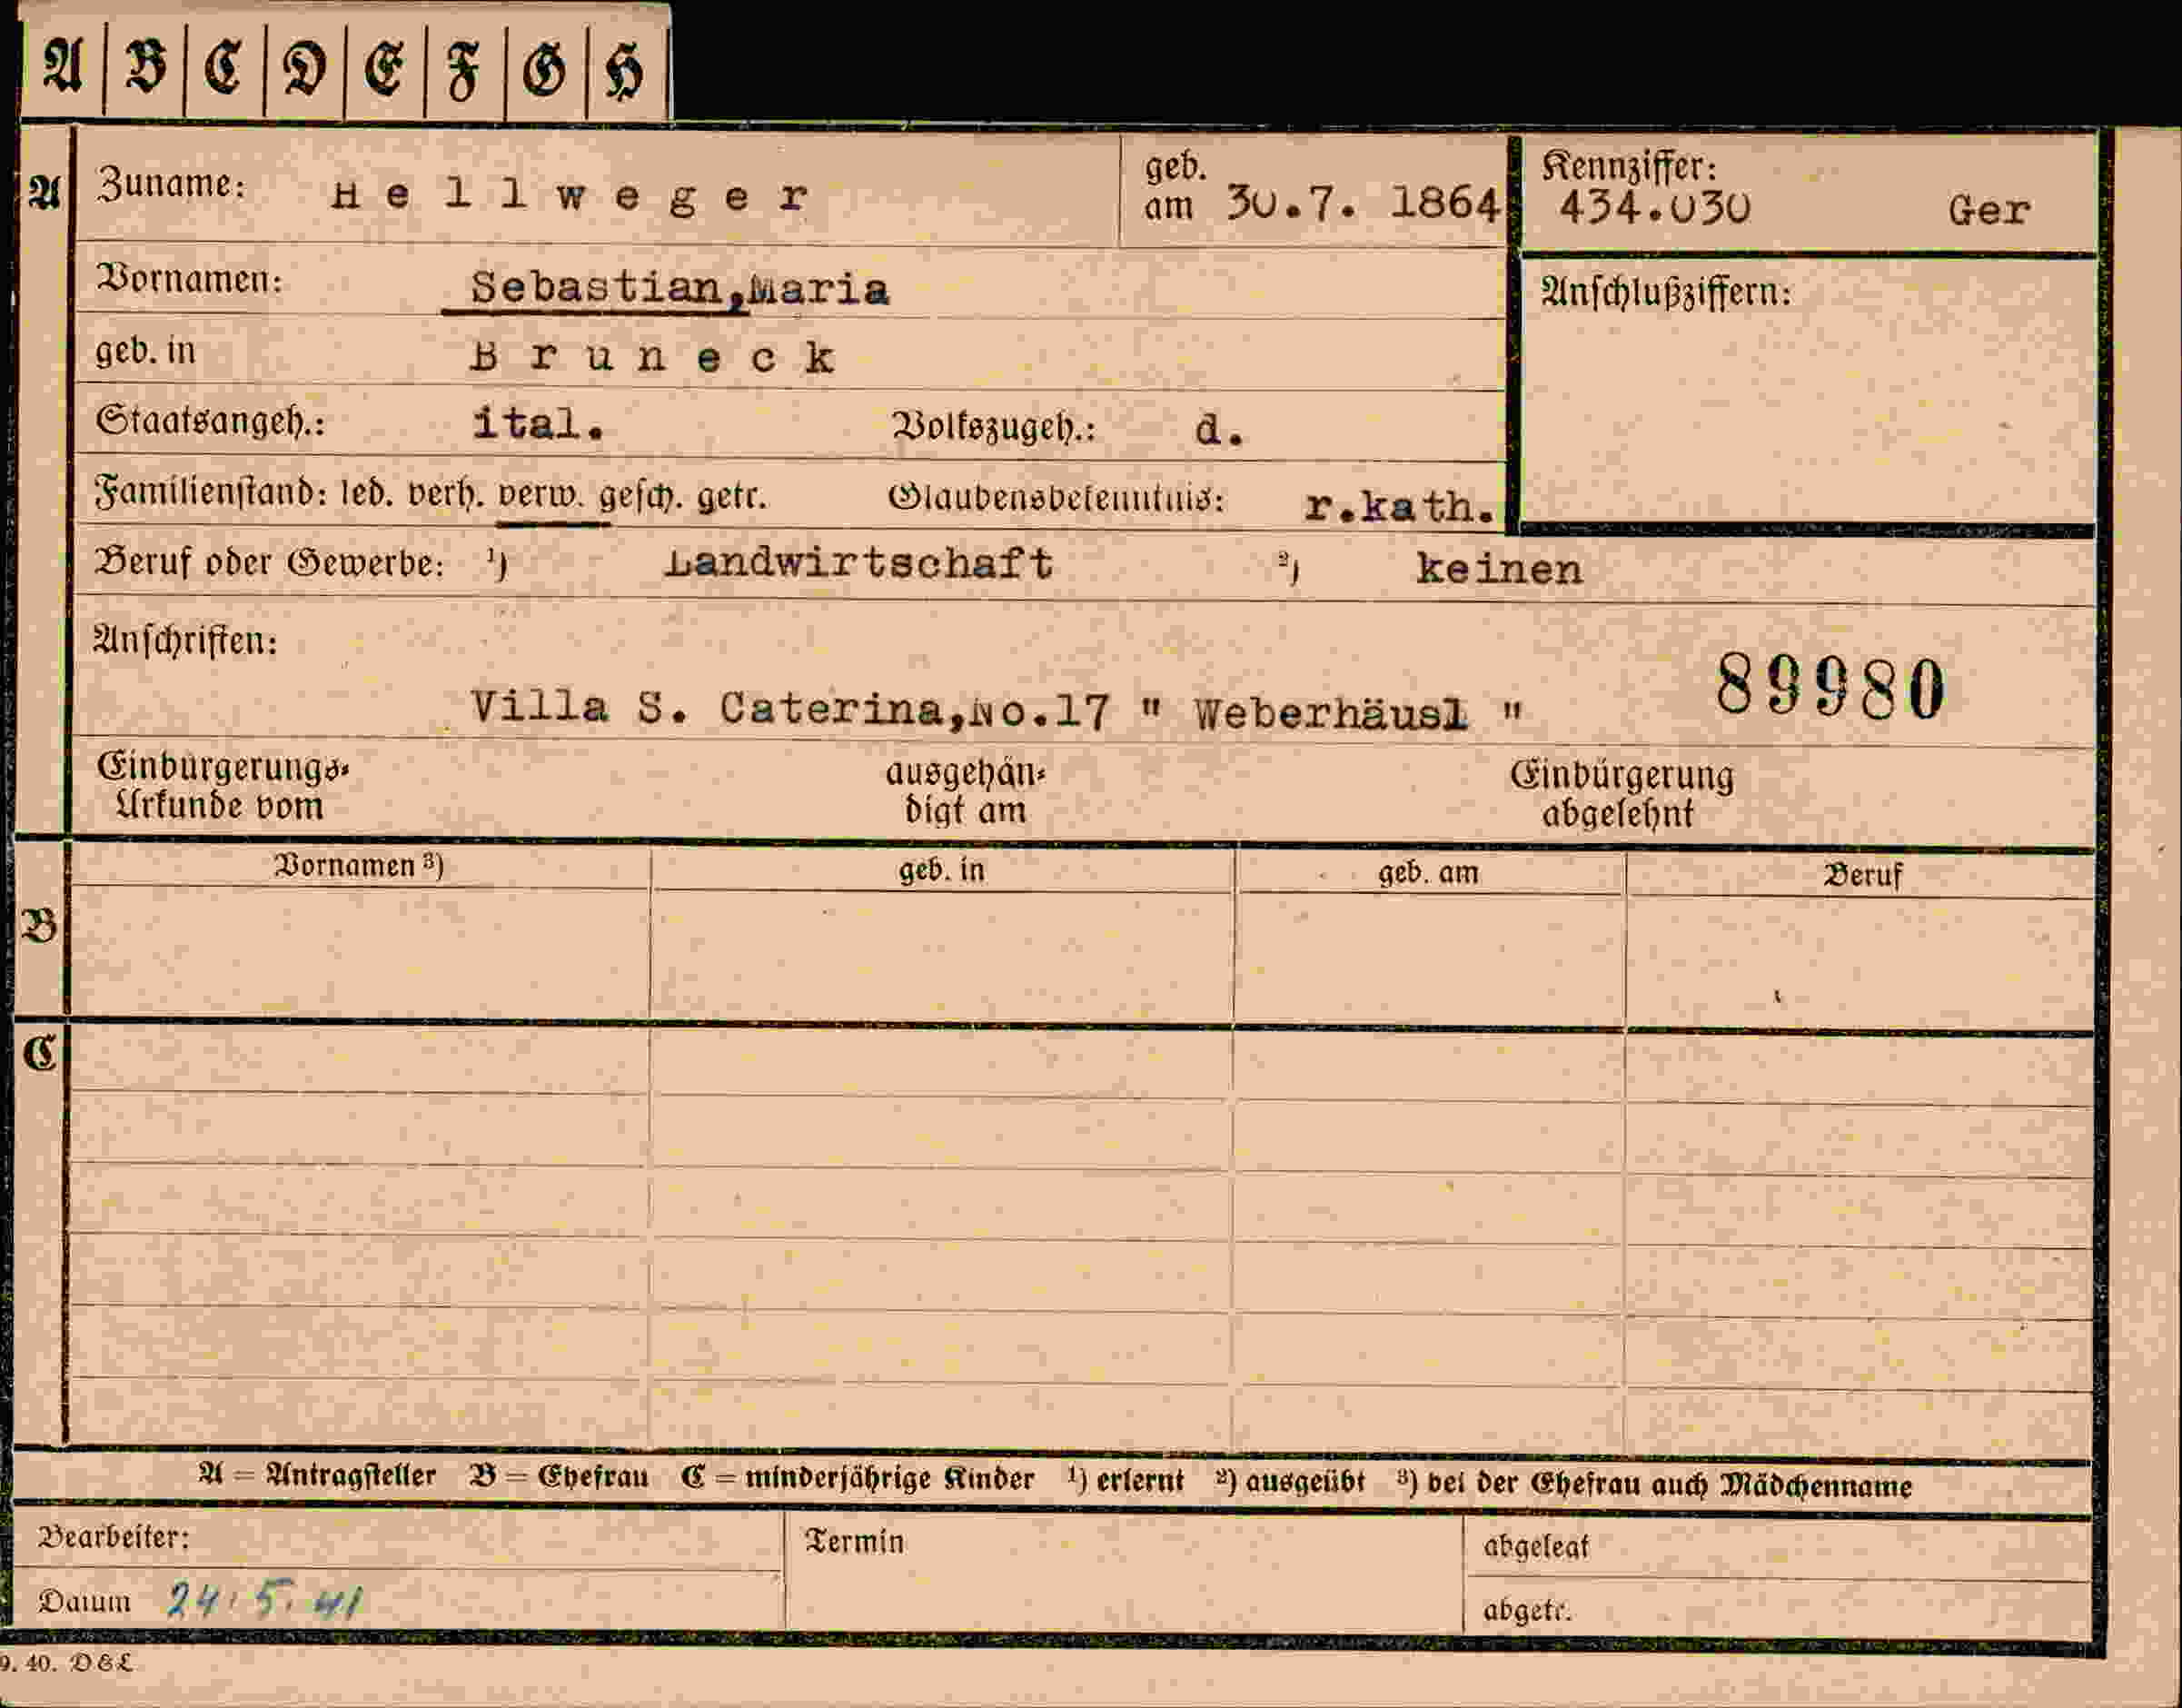 A B C D E F G H
A Zuname: Hellweger geb. am 30.7. 1864 Kennziffer: 434.030 Ger
Vornamen: Sebastian,Maria Anschlußziffern:
geb. in Bruneck
Staatsangeh.: ital. Volkszugeh.: d.
Familienstand: led. verh. verw. gesch. getr. Glaubensbekenntnis: r.kath.
Beruf oder Gewerbe: ¹) Landwirtschaft ²) keinen
Anschriften:
89980
Villa S. Caterina,No.17 " Weberhäusl "
Einbürgerungs- ausgehän- Einbürgerung
Urkunde vom digt am abgelehnt
Vornamen ³) geb. in geb. am Beruf
B
C
A = Antragsteller B = Ehefrau C = minderjährige Kinder ¹) erlernt ²) ausgeübt ³) bei der Ehefrau auch Mädchenname
Bearbeiter: Termin abgelegt
Datum 24.5.41 abgetr.
9. 40. D&L